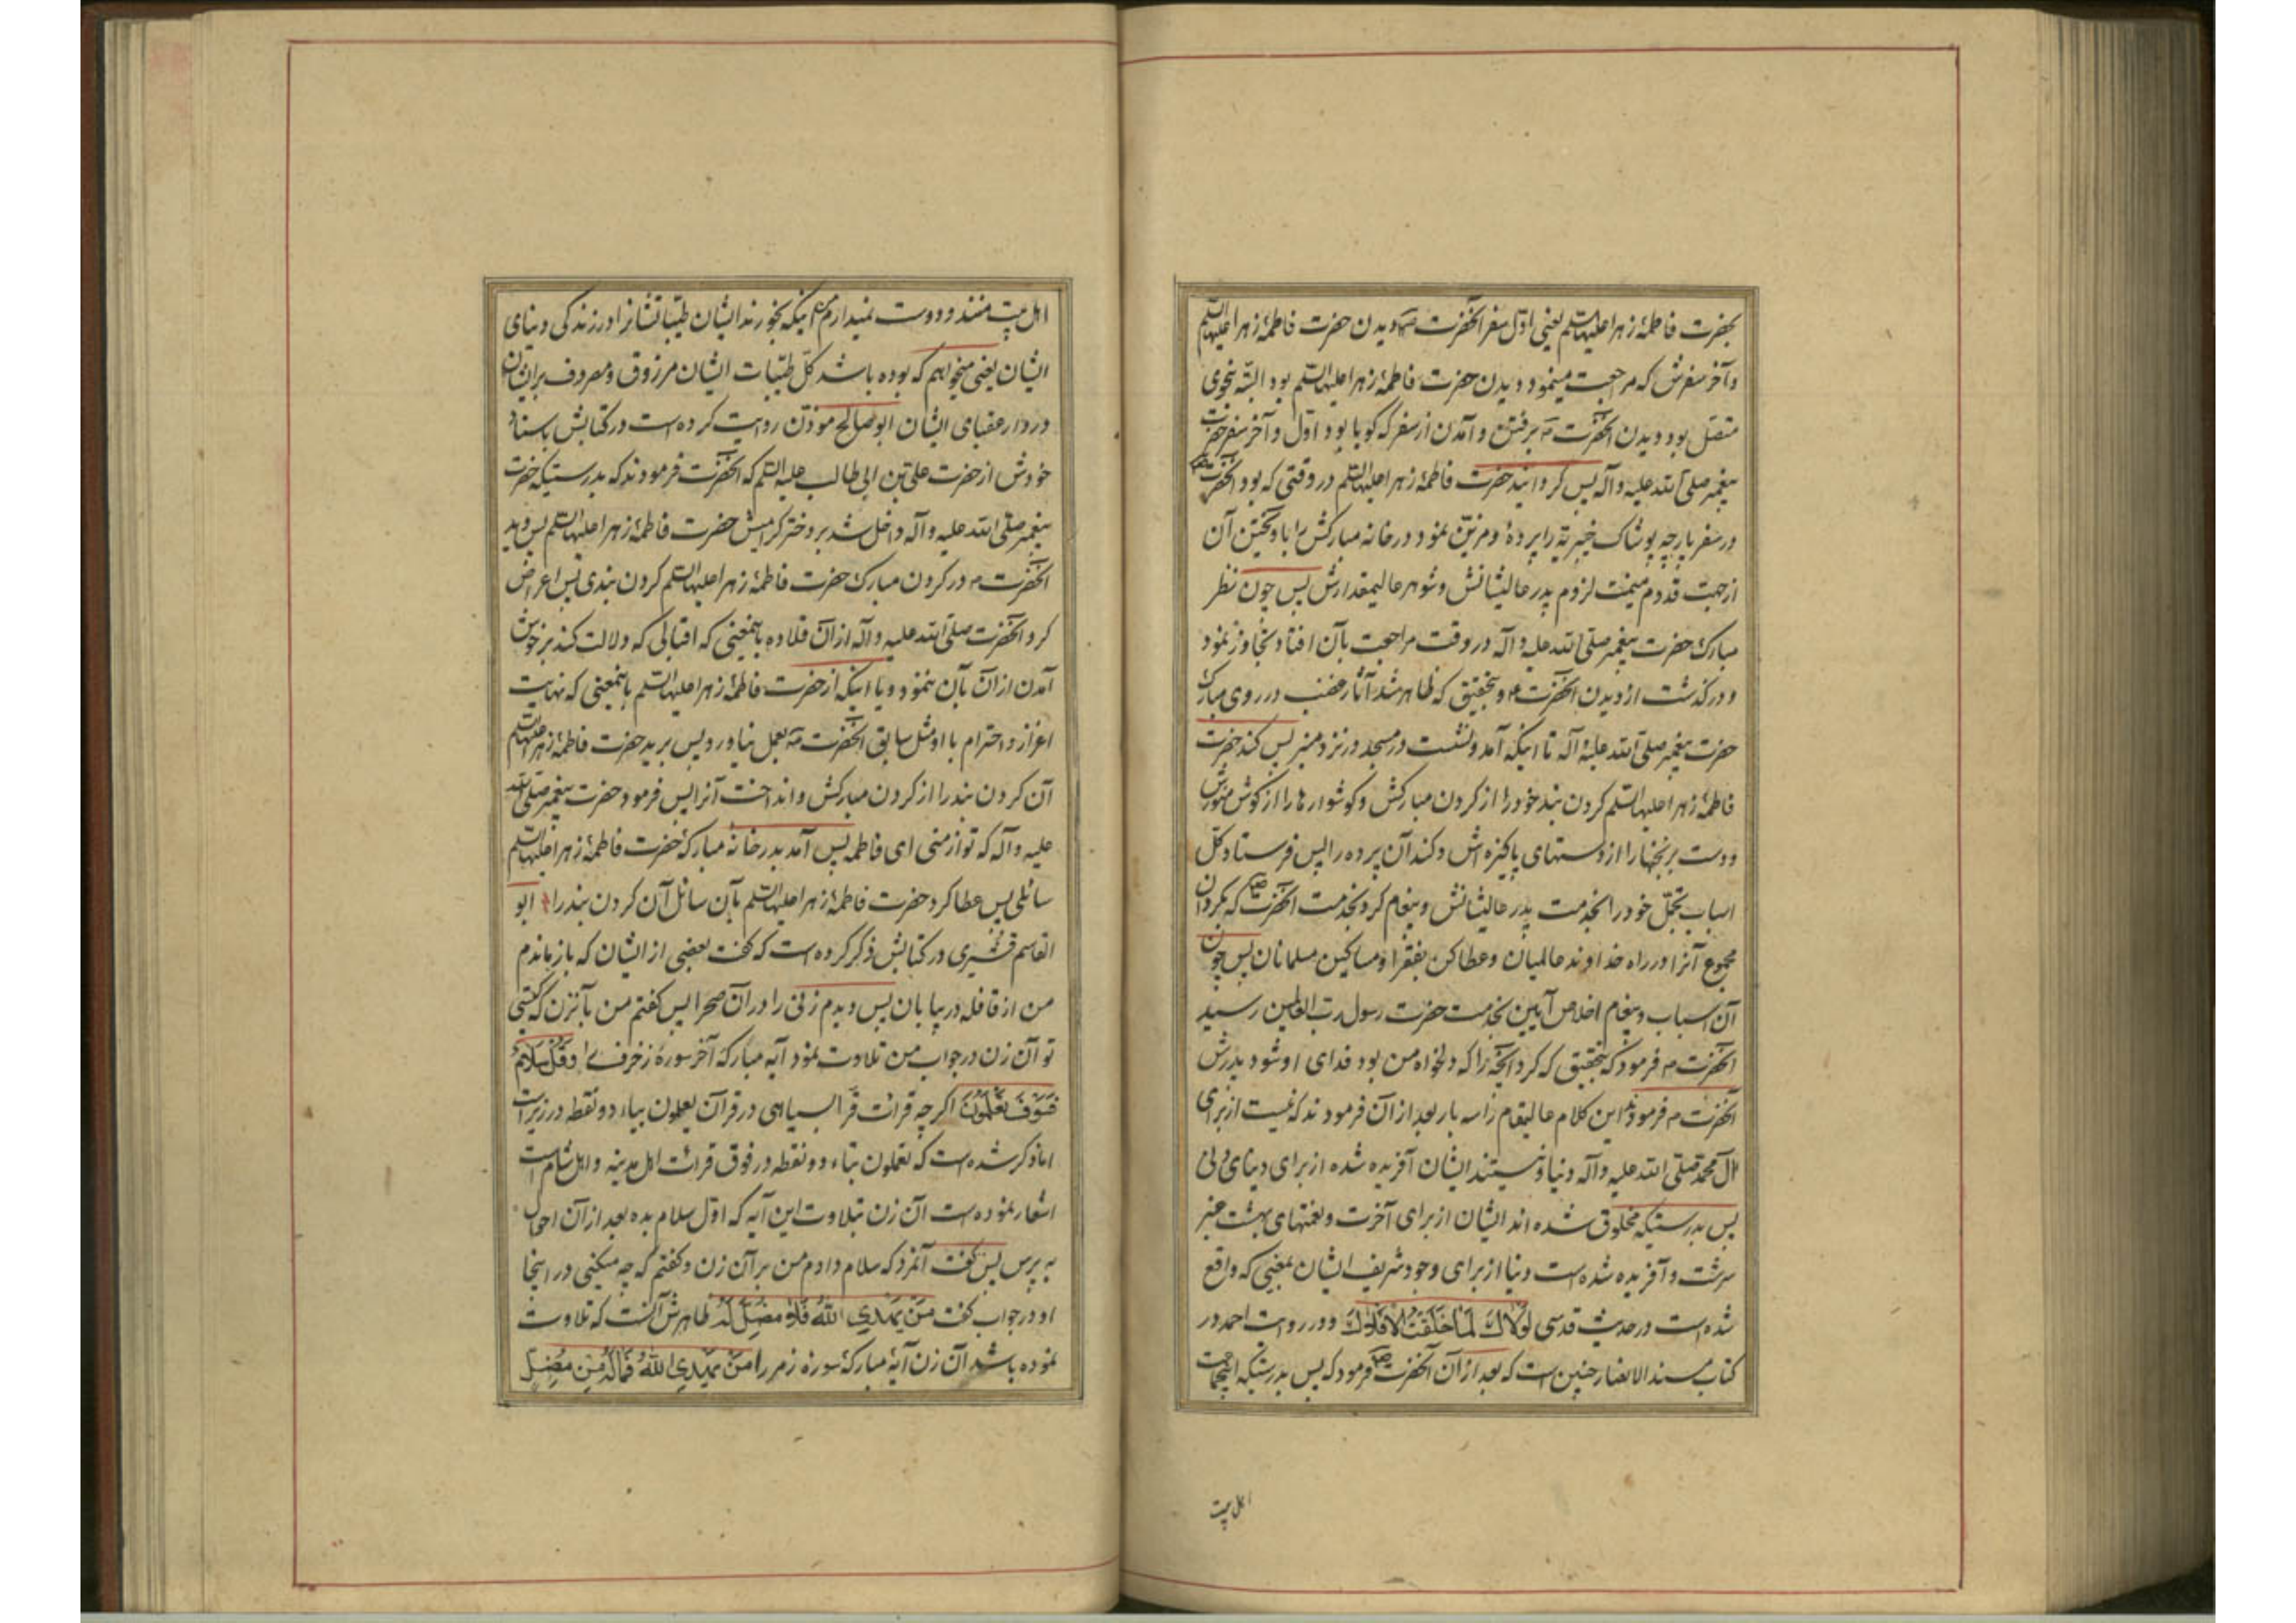 بحضرت فاطمۀ زهرا علیها السلم یعنی اوّل سفر آنحضرت دیدن حضرت فاطمۀ زهرا علیها السلم
و آخر سفرش که مرجعت مینمود دیدن حضرت فاطمۀ زهرا علیها السلم بود البتّه بنحوی
متصّل بود دیدن آنحضرت برفتن و آمدن از سفر که کویا بود اول و آخر سفر حضرت
پیغمبر صلّی اللّه علیه و آله پس کردانید حضرت فاطمۀ زهرا علیها السلم در وقتی که بود آنحضرت
در سفر پارچه پوشاک خیبریّه را پردۀ و مزیّن نمود در خانه مبارکش را باویختن آن
از جهت قدوم میمنت لزوم پدر عالیشانش و شوهر عالیمقدارش پس چون نظر
مبارک حضرت پیغمبر صلّی اللّه علیه و آله در وقت مراجعت بآن افتاد تجاوز نمود
و درکذشت از دیدن آنحضرت و بتحقیق که ظاهر شد آثار غضب در روی مبارک
حضرت پیغمبر صلّی اللّه علیه و آله تا اینکه آمد و نشست در مسجد در نزد منبر پس کند حضرت
فاطمۀ زهرا علیها السلم کردن بند خود را از کردن مبارکش و کوشوارها را از کوش منورش
و دست برنجها را از دستهای پاکیزه اش و کند آن پرده را پس فرستاد کلّ
اسباب تجمّل خود را بخدمت پدر عالیشانش و پیغام کرد بخدمت آنحضرت که بکردان
مجموع آنرا در راه خداوند عالمیان و عطا کن بفقرا و مساکین مسلمانان پس چون
آن اسباب و پیغام اخلاص آیین بخدمت حضرت رسول ربّ العالمین رسید
آنحضرت فرمود که بتحقیق که کرد آنچه را که دلخواه من بود فدای او شود پدرش
آنحضرت فرمودند این کلام عالیمقام را سه بار بعد از آن فرمودند که نیست از برای
آل محمّد صلّی اللّه علیه و آله دنیا و نیستند ایشان آفریده شده از برای دنیای دنی
پس بدرستیکه مخلوق شده اند ایشان از برای آخرت و نعمتهای بهشت عنبر
سرشت و آفریده شده است دنیا از برای وجود شریف ایشان بمعنیی که واقع
شده است در حدیث قدسی لولاک لما خلقت الافلاک و در روایت احمد در
کتاب مسند الانصار چنین است که بعد از آن آنحضرت فرمود که پس بدرستیکه اینجماعت
اهل بیت
اهل بیت منند و دوست نمیدارم اینکه بخورند ایشان طیّباتشانرا در زندکی دنیای
ایشان یعنی میخواهم که بوده باشد کلّ طیّبات ایشان مرزوق و مصروف بر ایشان
در دار عقبای ایشان ابو صالح مؤذّن روایت کرده است در کتابش باسناد
خودش از حضرت علی بن ابی طالب علیه السّلم که آنحضرت فرمودند که بدرستیکه حضرت
پیغمبر صلّی اللّه علیه و آله داخل شد بر دختر کرامیش حضرت فاطمۀ زهرا علیها السلم پس دید
آنحضرت در کردن مبارک حضرت فاطمۀ زهرا علیها السلم کردن بندی پس اعراض
کرد آنحضرت صلّی اللّه علیه و آله از آن قلاده باینمعینی که اقبالی که دلالت کند بر خوش
آمدن از آن بآن ننمود و یا اینکه از حضرت فاطمۀ زهرا علیها السلم باینمعنی که نهایت
اعزاز و احترام با او مثل سابق آنحضرت بعمل نیاورد پس برید حضرت فاطمۀ زهرا علیها السلم
آن کردن بند را از کردن مبارکش و انداخت آنرا پس فرمود حضرت پیغمبر صلّی اللّه
علیه و آله که تو از منی ای فاطمه پس آمد بدر خانۀ مبارکۀ حضرت فاطمۀ زهرا علیها السلم
سائلی پس عطا کرد حضرت فاطمۀ زهرا علیها السلم بآن سائل آن کردن بند را ابو
القاسم قشیری در کتابش ذکر کرده است که کفت بعضی از ایشان که باز ماندم
من از قافله در بیابان پس دیدم زنی را در آن صحرا پس کفتم من بآنزن که کیستی
تو آن زن در جواب من تلاوت نمود آیه مبارکۀ آخر سورۀ زخرف را وَقُلْ سَلَامٌ
فَسَوْفَ تَعْلَمُونَ اکر چه قرائت قرّا سیاهی در قرآن یعلمون بیاء دو نقطه در زیر است
اما ذکر شده است که تعلمون بتاء دو نقطه در فوق قرائت اهل مدینه و اهل شام است
اشعار نموده است آن زن بتلاوت این آیه که اوّل سلام بده بعد از آن احوال
به پرس پس کفت آنمرد که سلام دادم من بر آن زن و کفتم که چه میکنی در اینجا
او در جواب کفت مَنْ یَهْدِی اللّهُ فَلَا مُضِلَّ لَهُ ظاهرش آنست که تلاوت
نموده باشد آن زن آیۀ مبارکۀ سورۀ زمر را مَنْ یَهْدِی اللّهُ فَمَا لَهُ مِن مُضِلّ